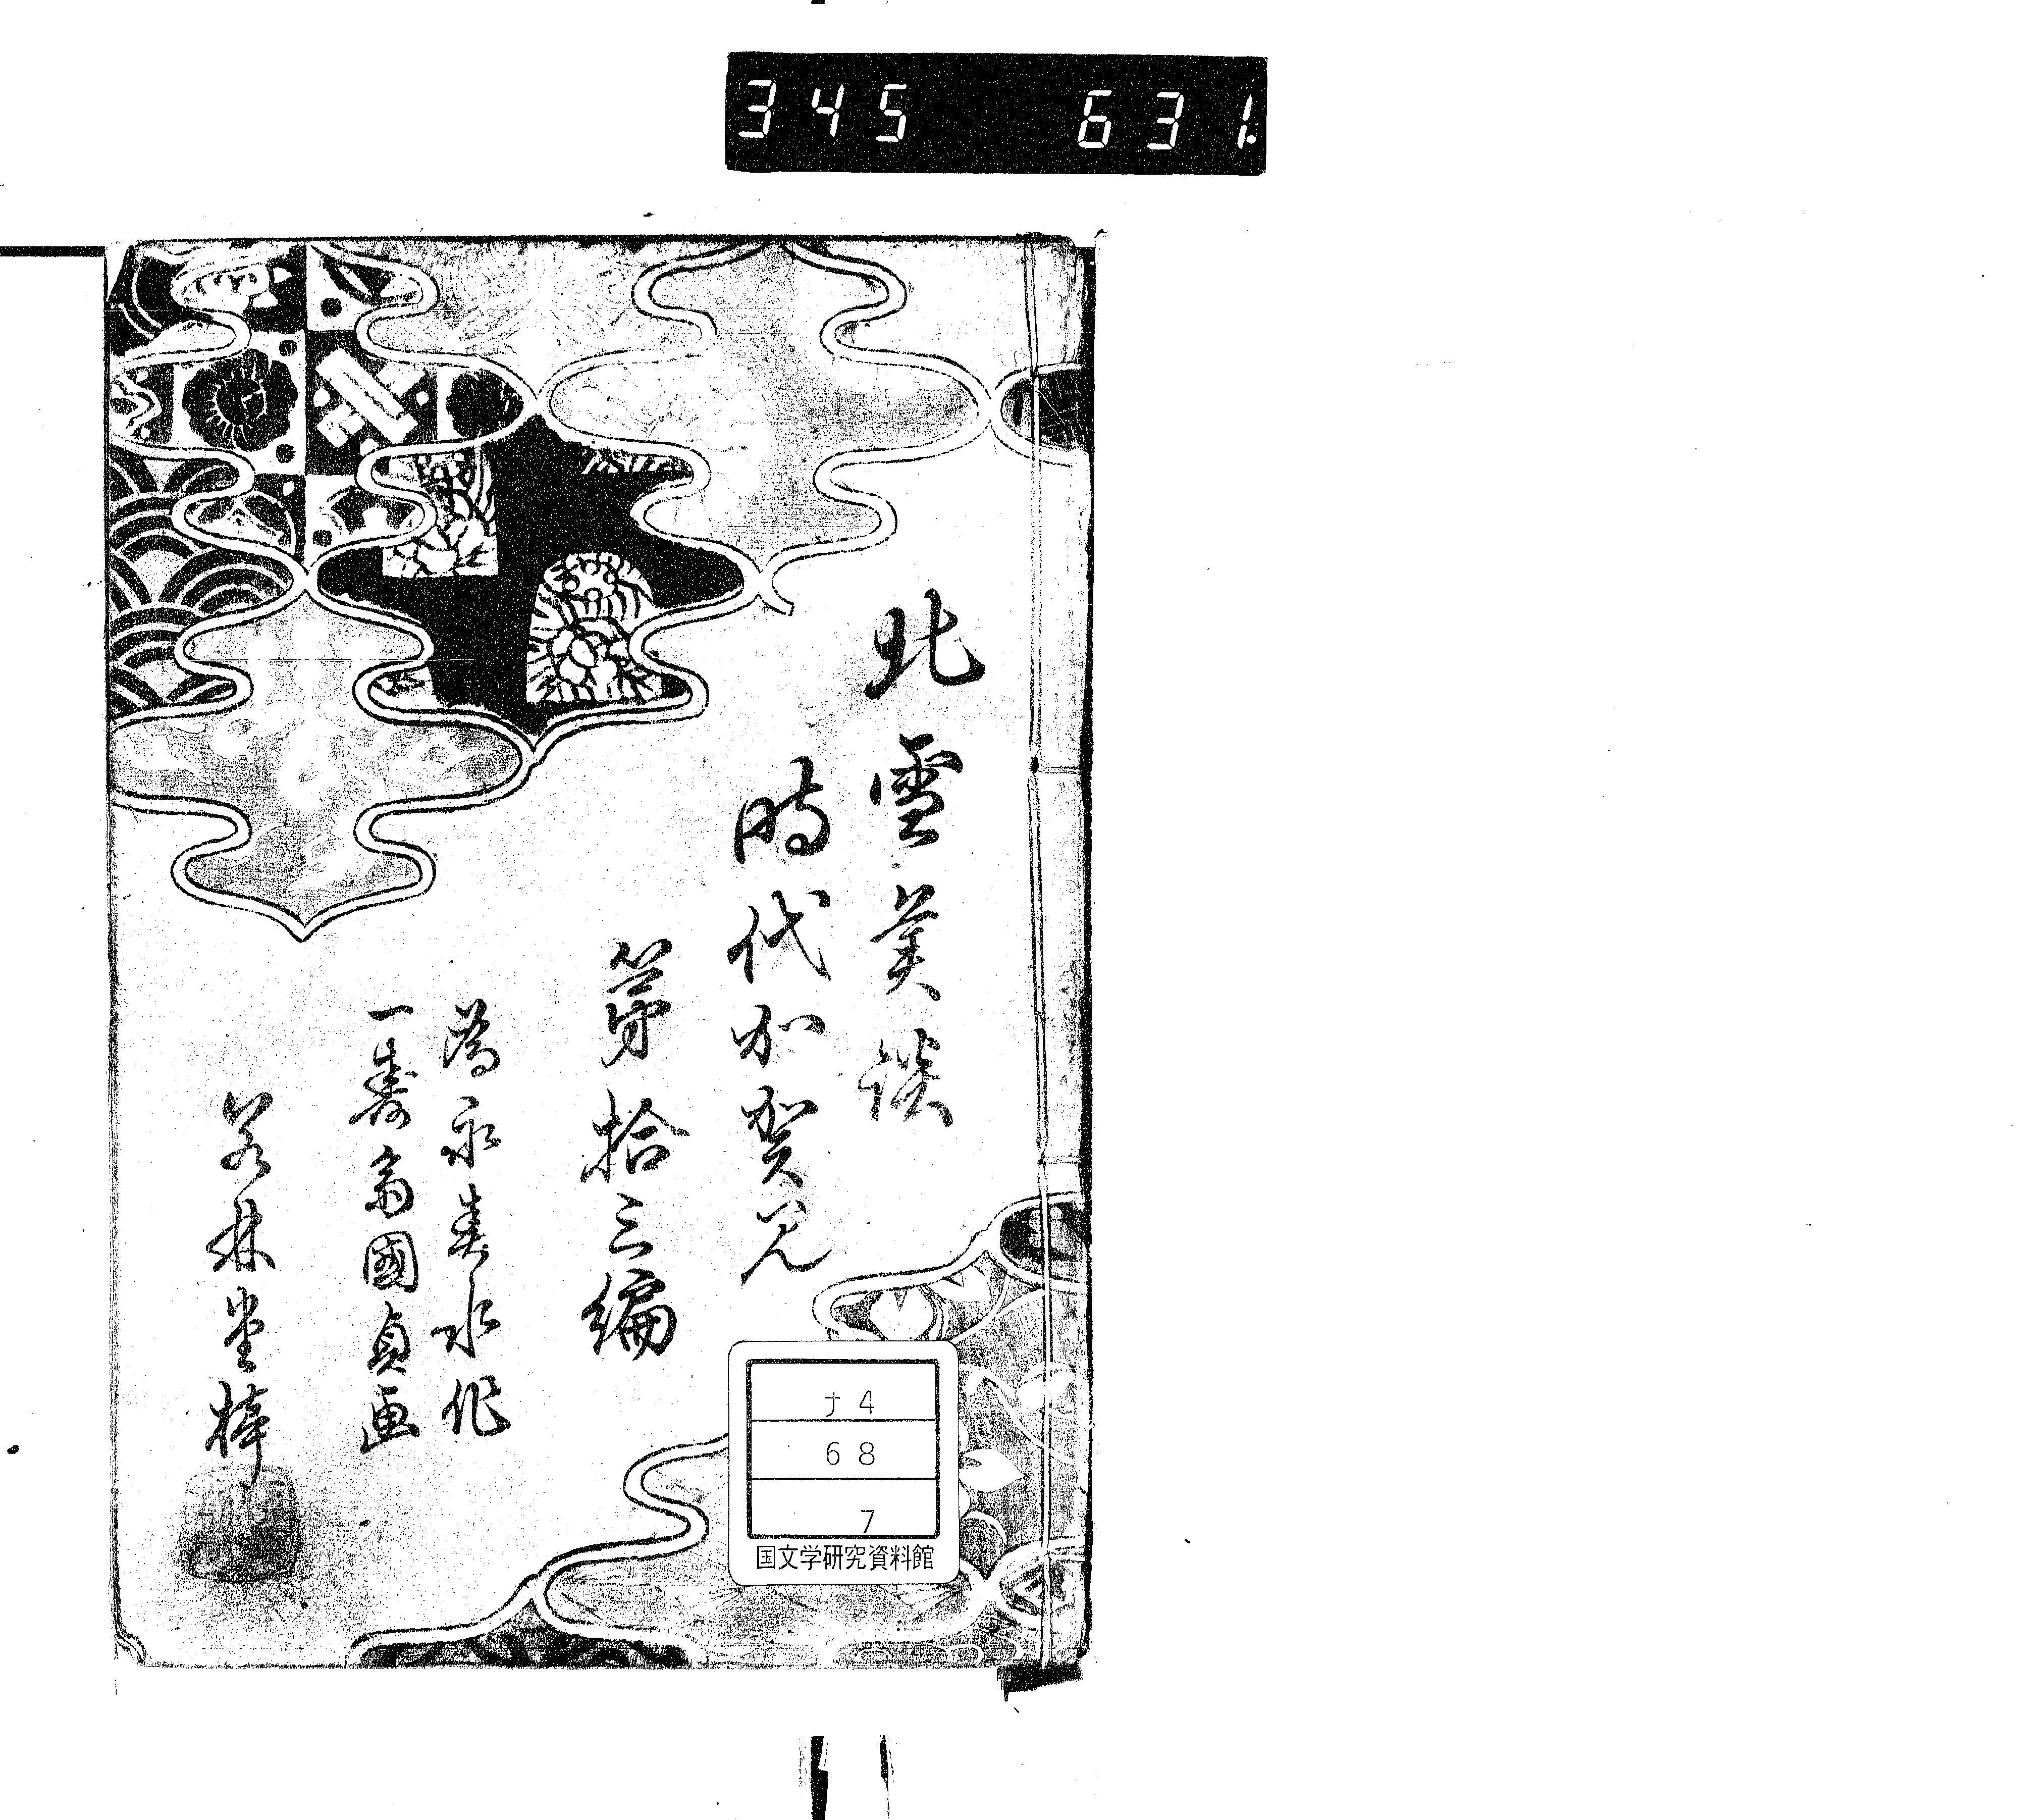 345 631.
北雪美談
時代加賀見
第拾三編
為永春水作
一壽斎國貞画
若林堂梓
ナ4
68
7
国文学研究資料館